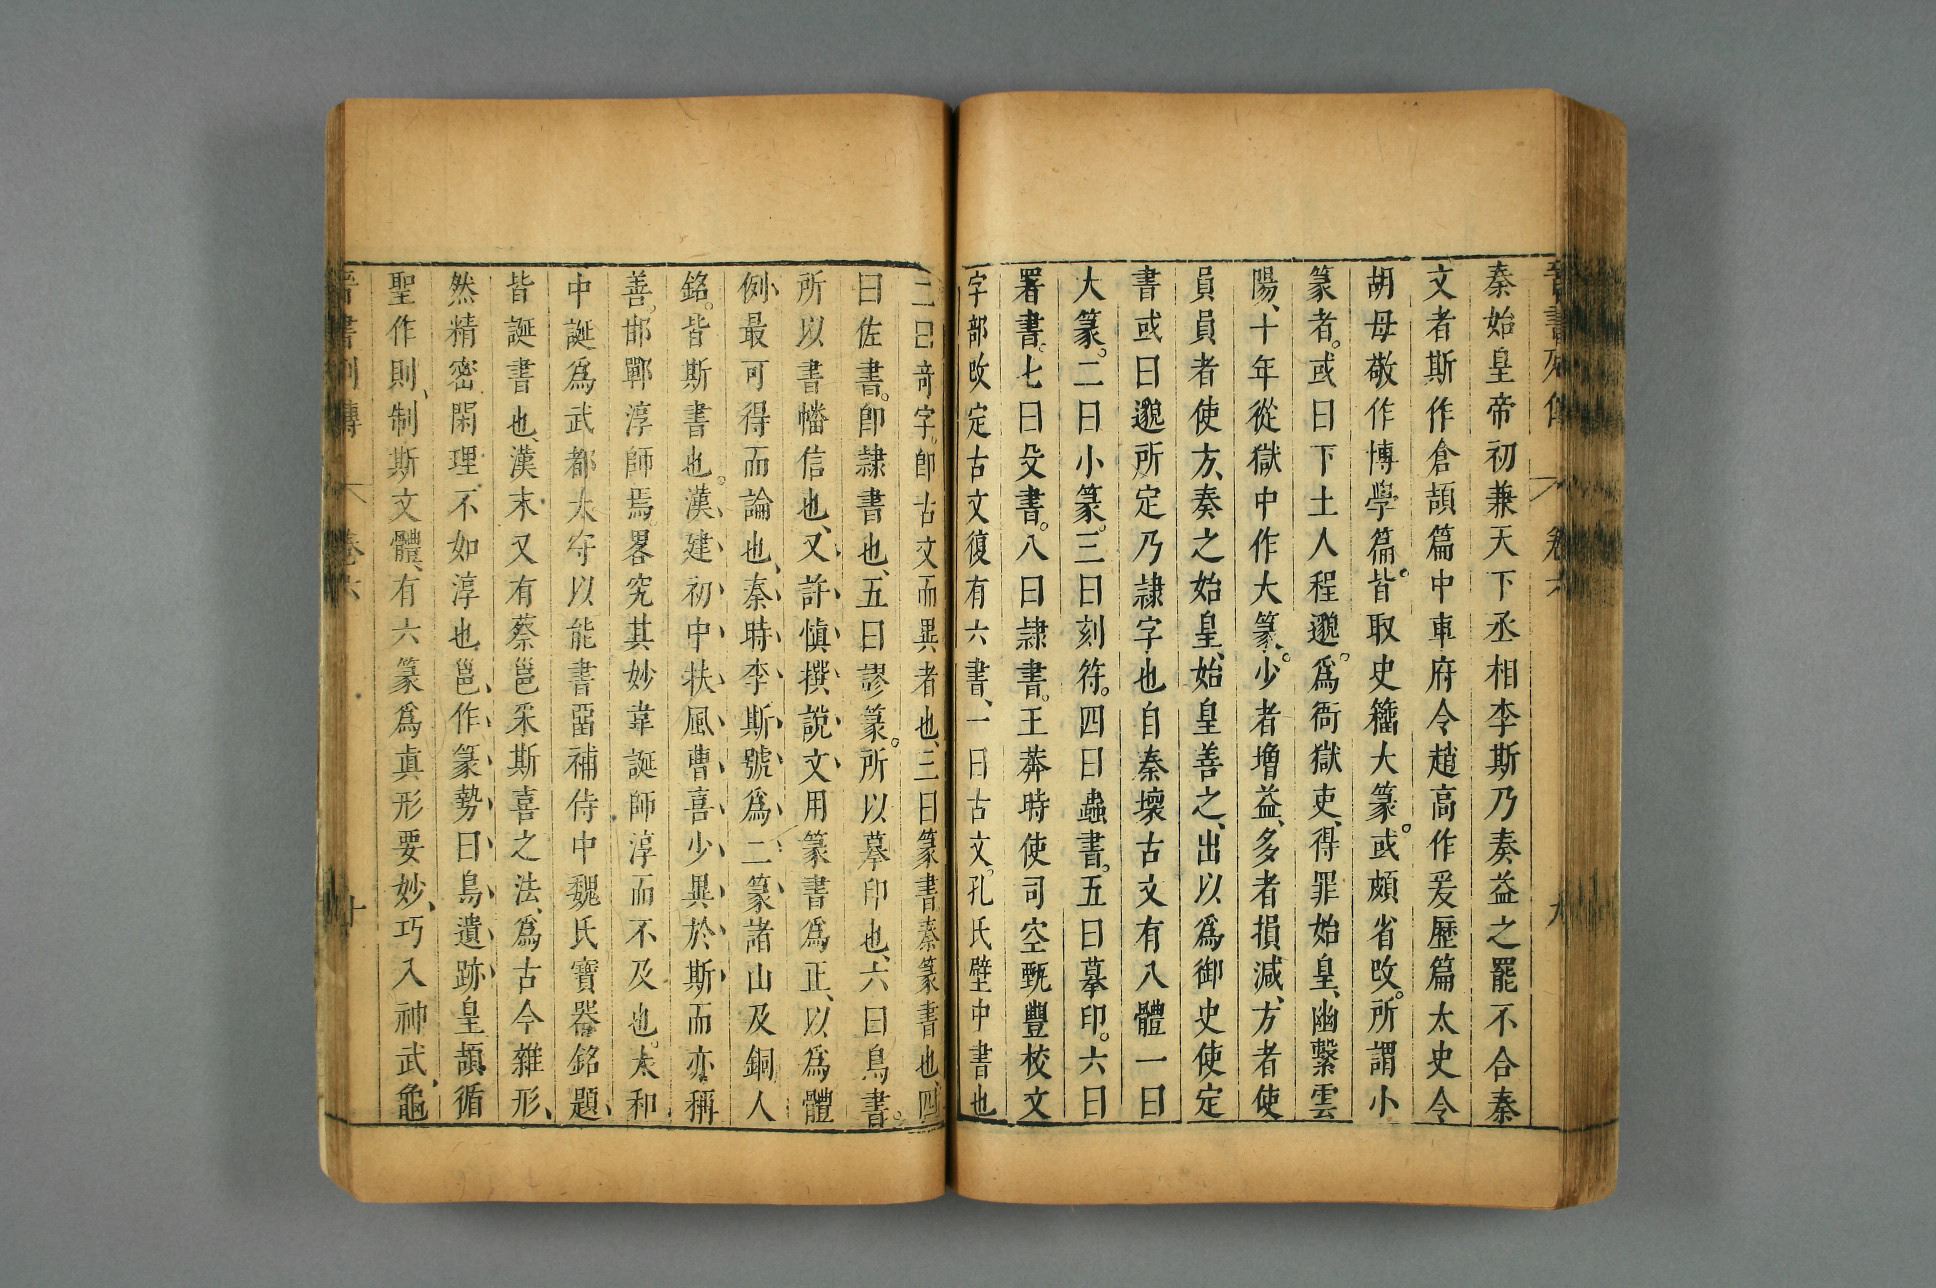 晉書列傳 卷六 九
秦始皇帝初兼天下丞相李斯乃奏益之罷不合秦
文者斯作倉頡篇中車府令趙高作爰歷篇太史令
胡母敬作博學篇。皆取史籒大篆。或頗省改。所謂小
篆者。或曰下土人程邈。爲衙獄吏、得罪始皇、幽繫雲
陽、十年從獄中作大篆。少者增益、多者損減、方者使
員員者使方、奏之始皇、始皇善之、出以爲御史使定
書或曰邈所定乃隷字也自秦壞古文有八體一曰
大篆。二曰小篆。三曰刻符。四曰蟲書。五曰摹印。六曰
署書。七曰殳書。八曰隷書。王莽時使司空甄豐校文
字部改定古文復有六書、一曰古文。孔氏壁中書也
二曰竒字。卽古文而異者也、三曰篆書。秦篆書也、四
曰佐書。卽隷書也、五曰謬篆。所以摹印也、六曰鳥書。
所以書幡信也、又許慎撰說文用篆書爲正、以爲體
例、最可得而論也、秦時李斯號爲二篆諸山及銅人
銘。皆斯書也。漢建初中扶風曹喜少異於斯而亦稱
善。邯鄲淳師焉。畧究其妙韋誕師淳而不及也。太和
中誕爲武都太守以能書留補侍中魏氏寶器銘題、
皆誕書也、漢末又有蔡邕采斯喜之法、爲古今雜形、
然精密閑理不如淳也邕作篆勢曰鳥遺跡皇頡循
聖作則、制斯文體、有六篆爲真形要妙、巧入神或、龜
晉書列傳 卷六 十